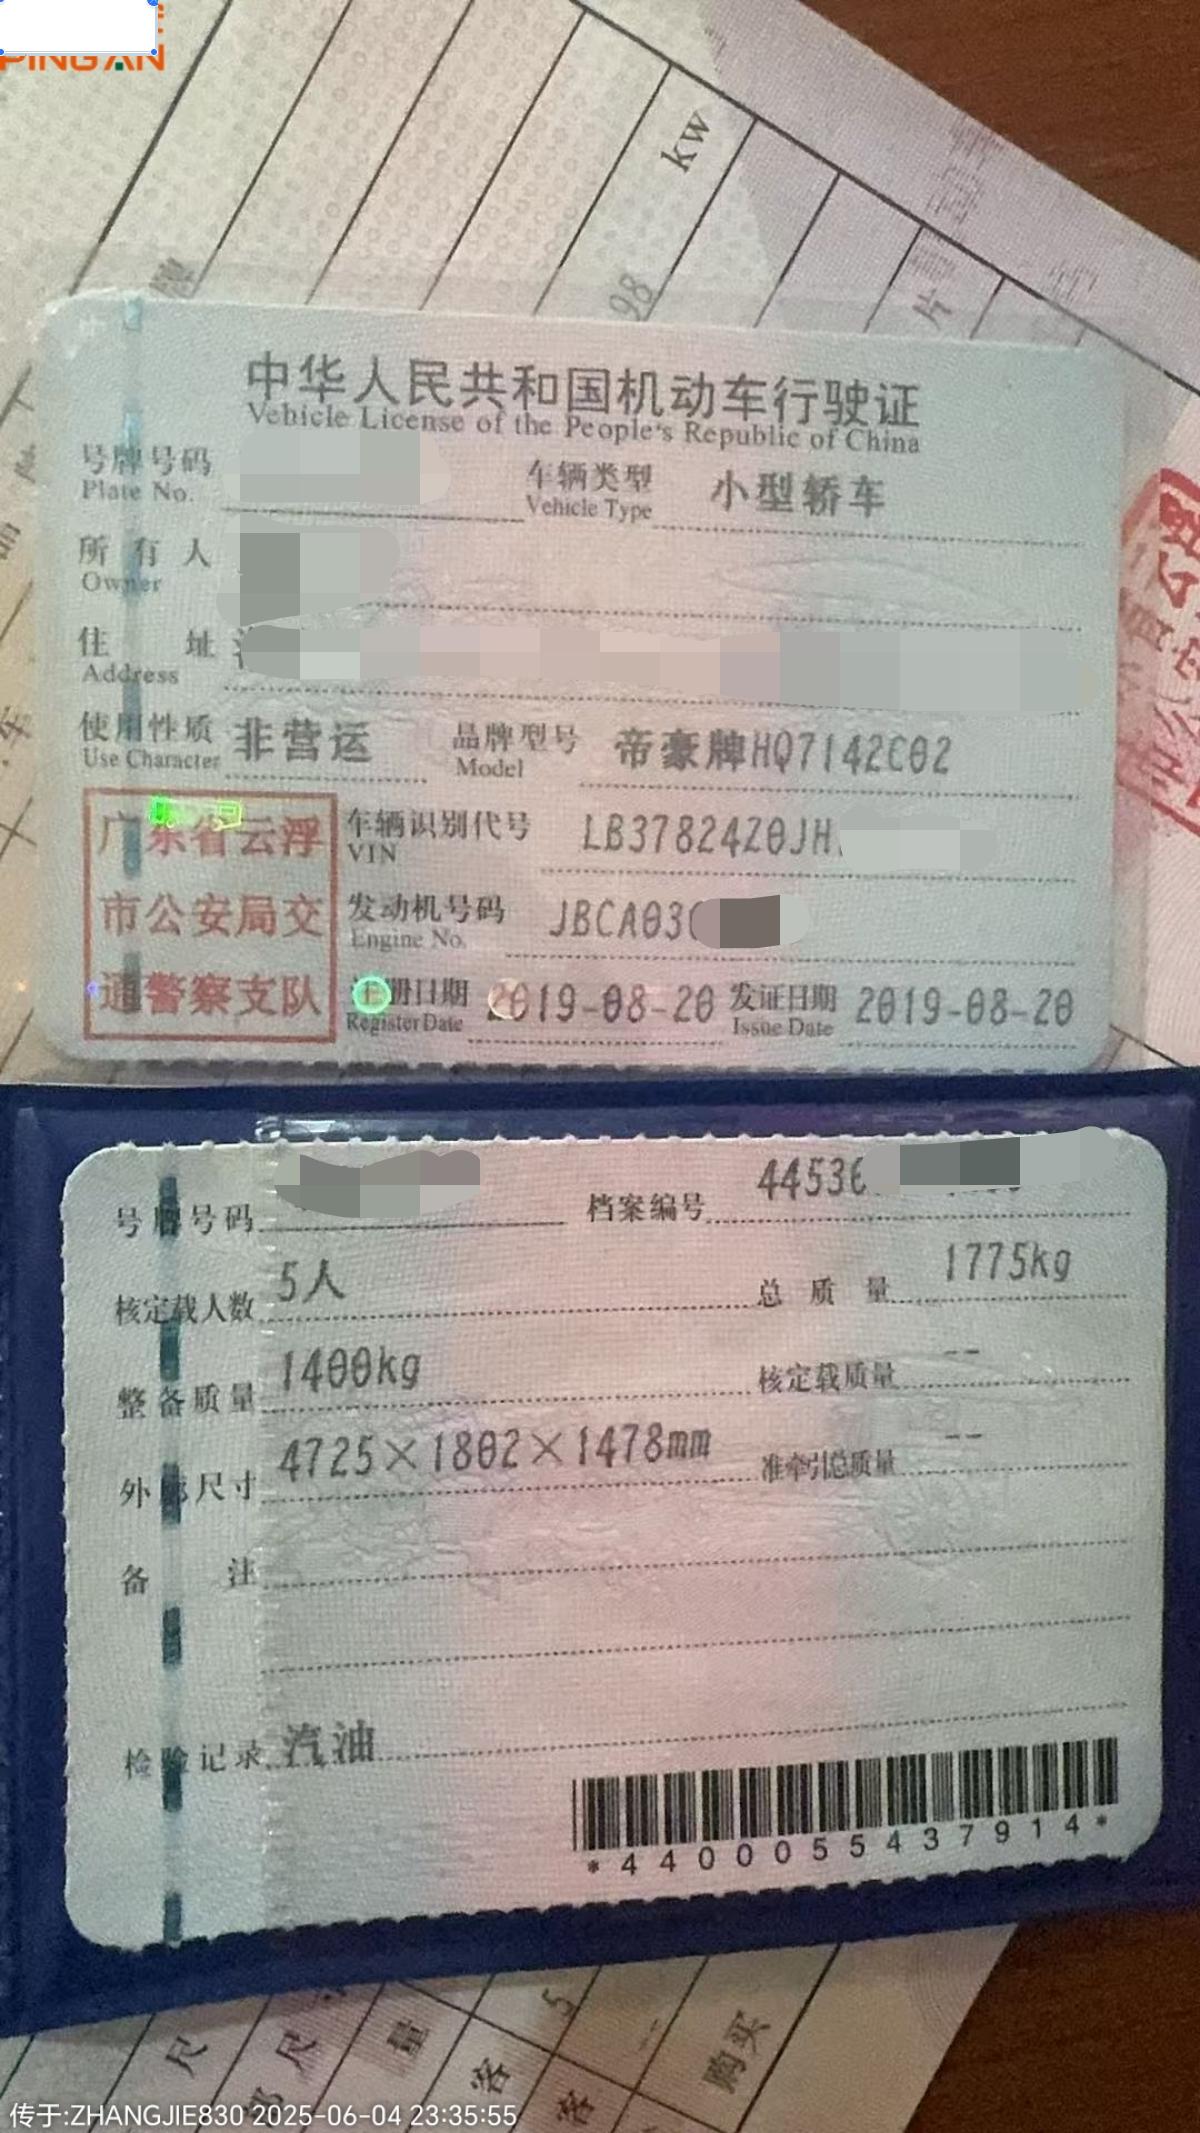 PING AN
kw
98
片
中华人民共和国机动车行驶证
Vehicle License of the People's Republic of China
号牌号码
Plate No.
车辆类型 小型轿车
Vehicle Type
所有人
Owner
住址
Address
使用性质 非营运
Use Character
品牌型号 帝豪牌HQ7142C02
Model
广东省云浮
市公安局交
通警察支队
车辆识别代号 LB37824Z0JH
VIN
发动机号码 JBCA03
Engine No.
注册日期 2019-08-20
Register Date
发证日期 2019-08-20
Issue Date
号牌号码
档案编号 4453
核定载人数 5人
总质量 1775kg
整备质量 1400kg
核定载质量 --
外部尺寸 4725×1802×1478mm
准牵引总质量 --
备注
检验记录 汽油
*4400055437914*
尺
尺
量
5
客
购买
传于:ZHANGJIE830 2025-06-04 23:35:55